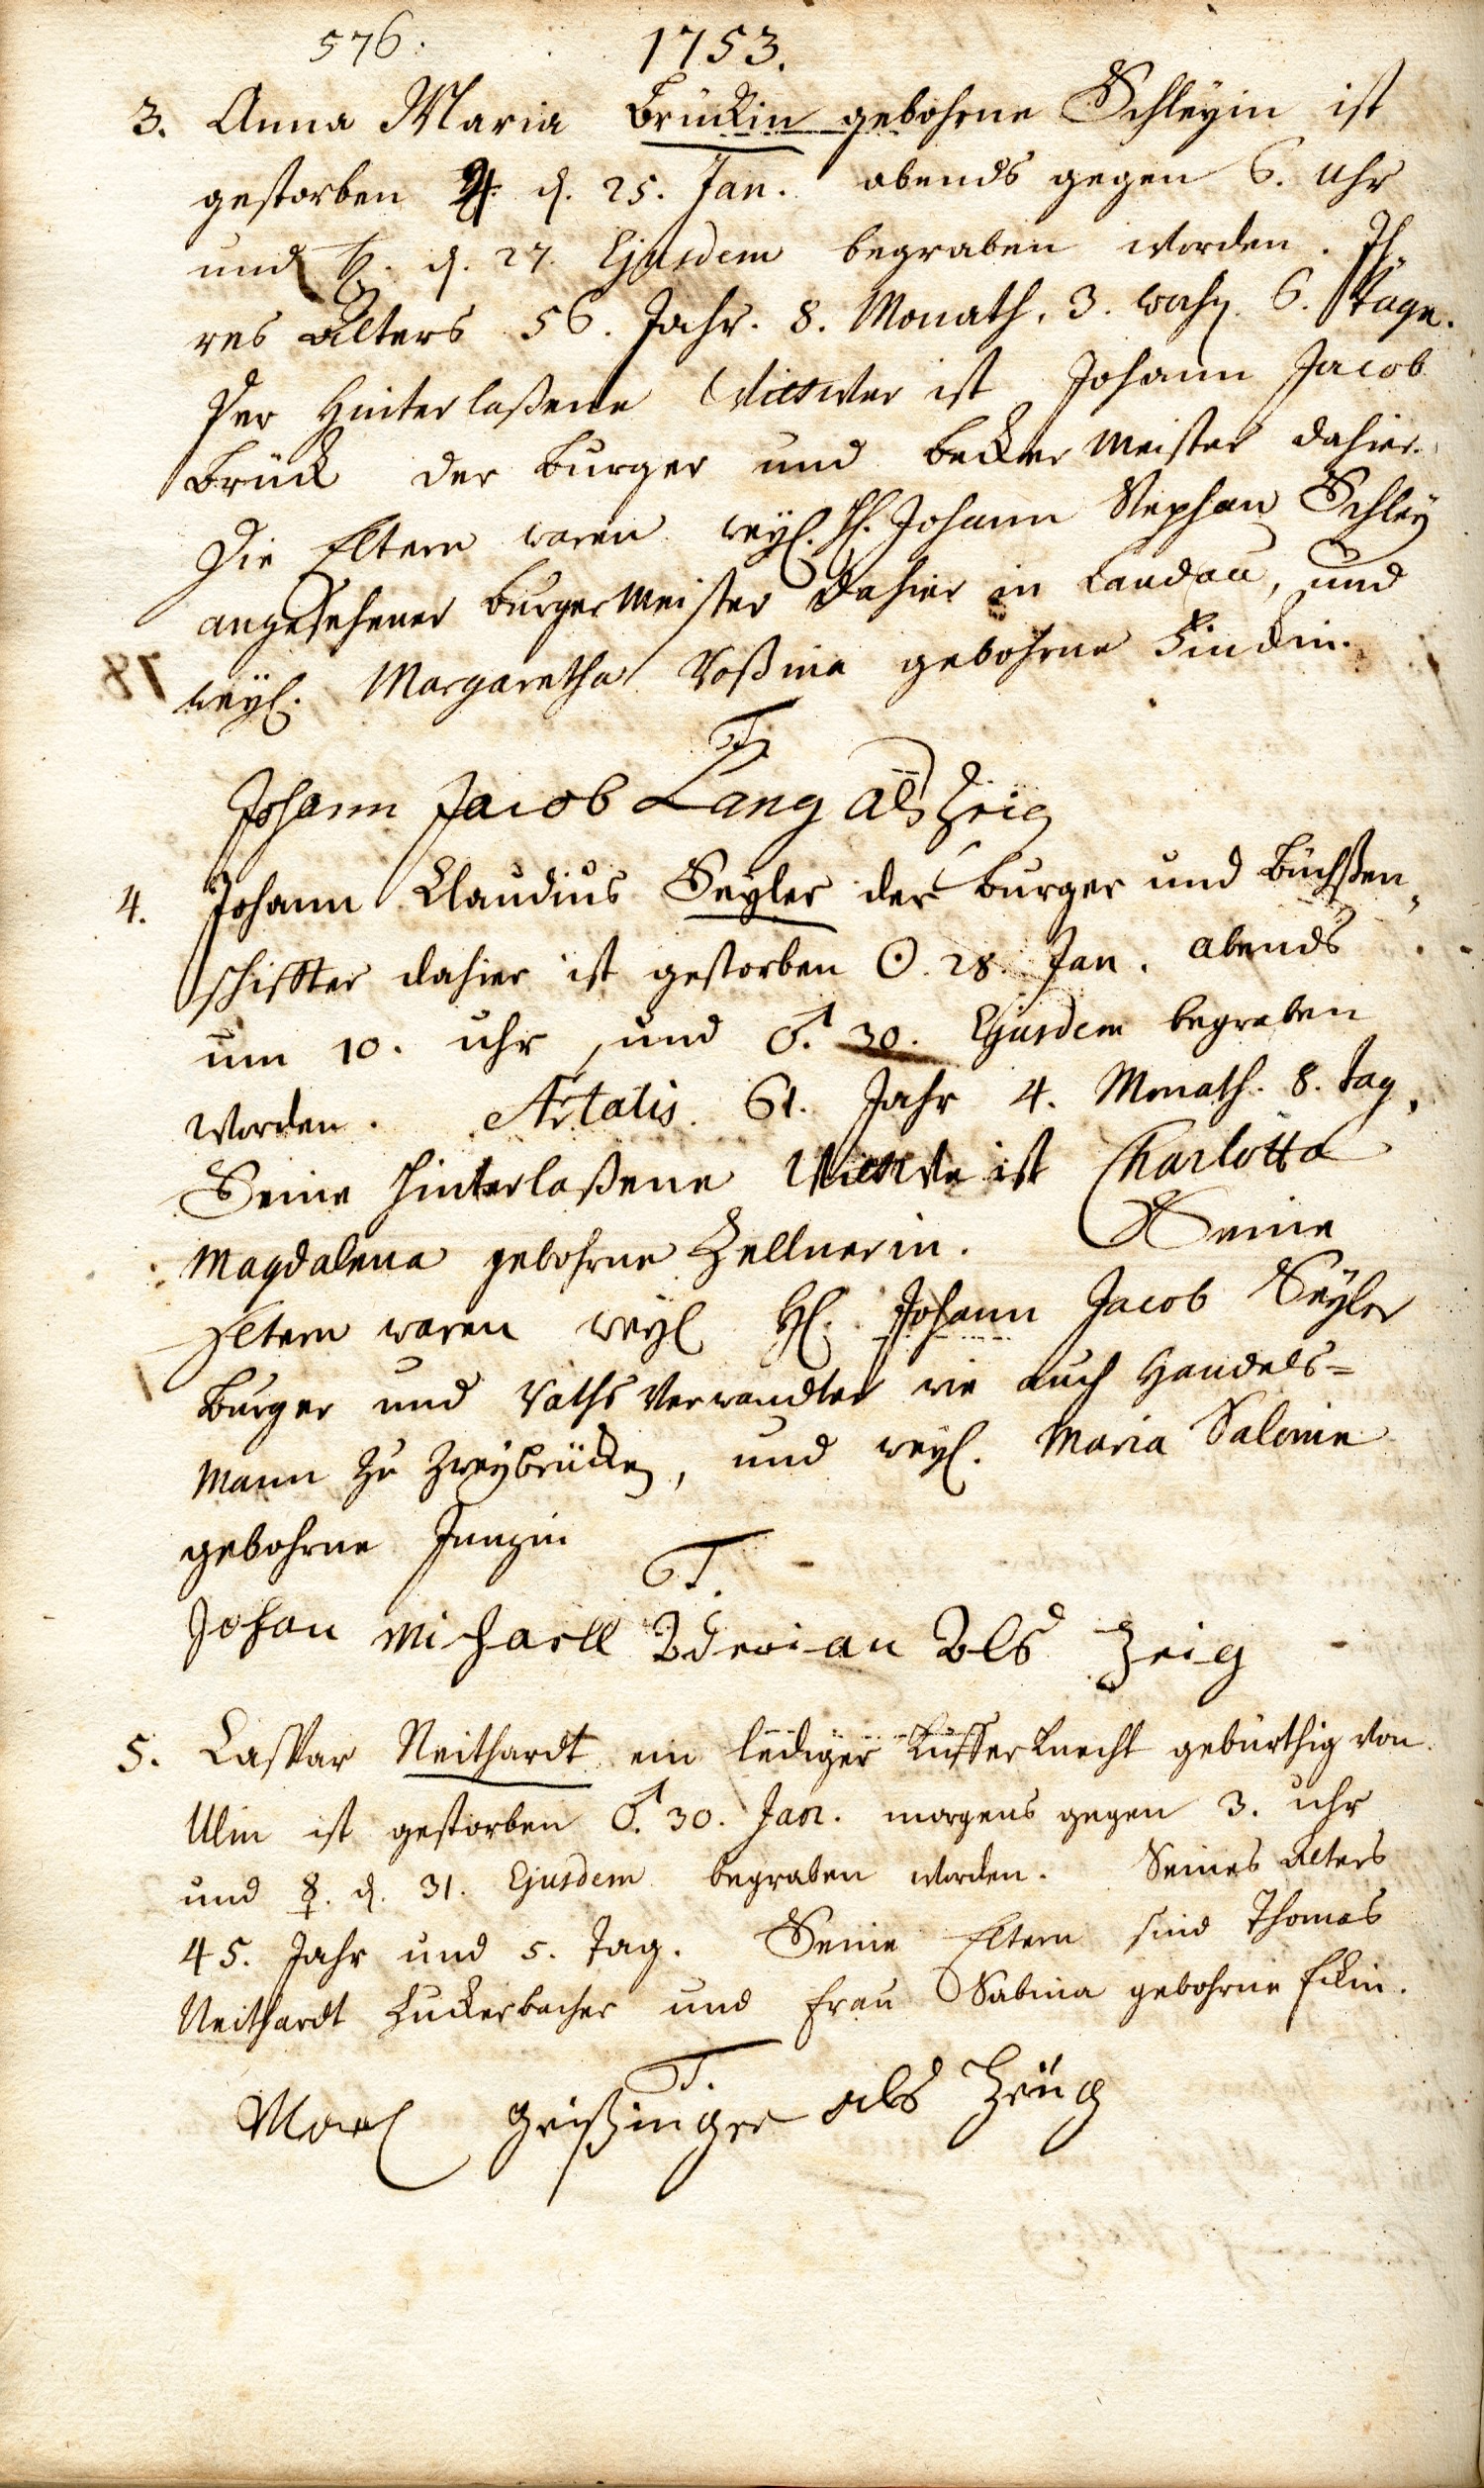 576. 1753.
3. Anna Maria Brückin gebohrne Schleyin ist
gestorben ♃ d. 25. Jan. abends gegen 6. Uhr
und ♄. d. 27. Ejusdem begraben worden. Ih„
res Alters 56. Jahr. 8. Monath. 3. woch. 6. Tage.
Der Hinterlaßene Wittwer ist Johann Jacob
Brück der Burger und Becker Meister dahier.
Die Eltern waren weyl. H. Johann Stephan Schley
angesehener Burger Meister dahier in Landau, und
weyl. Margaretha Roßina gebohrne
T.
Johann Jacob Lang als Zeig
4. Johann Claudius Seyler der Burger und Büchßen„
schiffter dahier ist gestorben ☉. 28. Jan. abends
um 10. Uhr, und ♂. 30. Ejusdem begraben
worden. Aetatis. 61. Jahr 4. Monath. 8. Tag.
Seine hinterlaßene Wittwe ist Charlotta
Magdalena gebohrne Zellnerin. Seine
Eltern waren weyl H. Johann Jacob Seyler
Burger und Raths Verwandter wie auch Handels=
Mann zu Zweybrücken, und weyl. Maria Salome
gebohrne
T.
Johan Michaell als Zeig
5. Caspar Neithardt ein lediger Küffer Knecht gebürthig von
Ulm ist gestorben ♂. 30. Jan. morgens gegen 3. Uhr
und ☿. d. 31. Ejusdem begraben worden. Seines Alters
45. Jahr und 5. Tag. Seine Eltern sind Thomas
Neithardt Zuckerbacher und Frau Sabina gebohrne Eckin.
T.
Geißinger als Zeüg